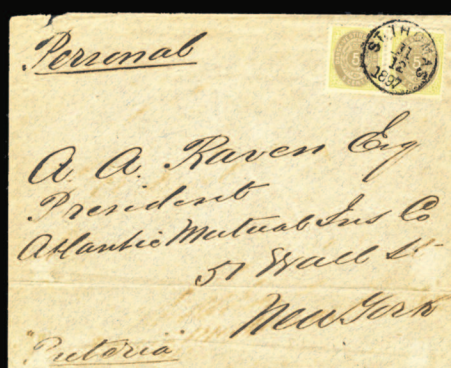 Personal
ST. THOMAS
11
12
1897
A. A. Raven Esq
President
Atlantic Mutual Ins Co
51 Wall St.
New York